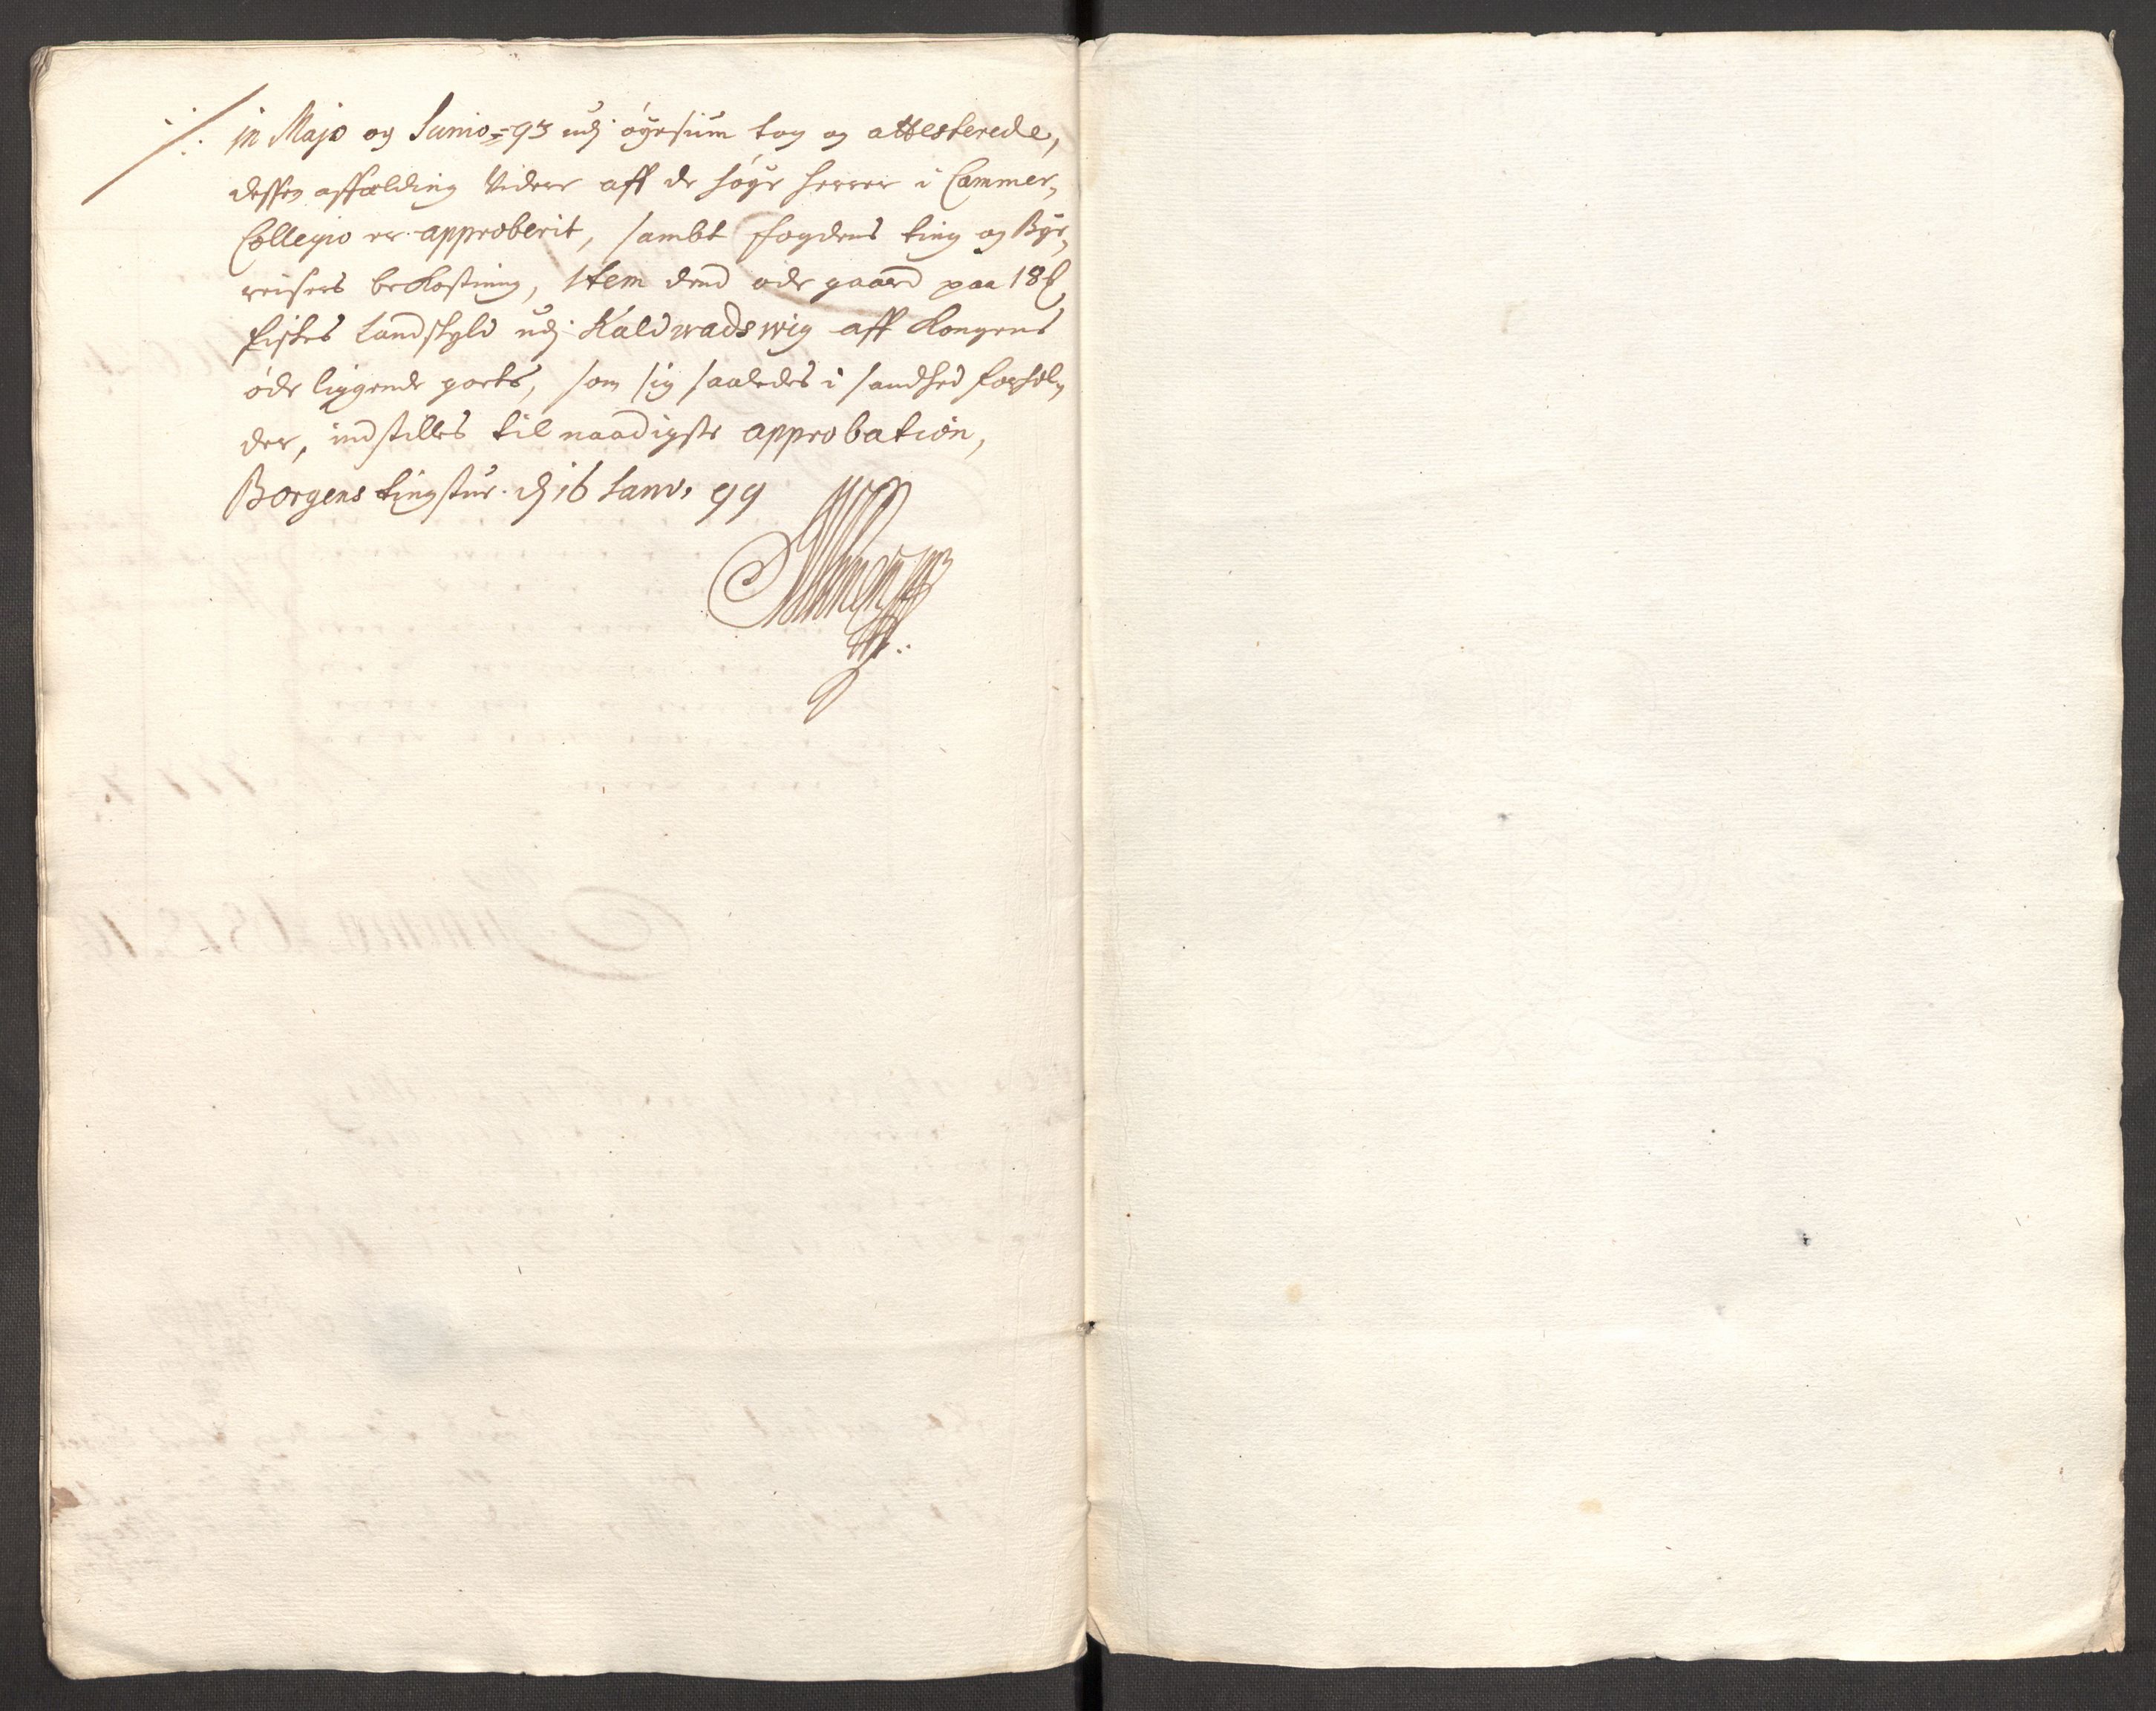 in Majo og Junio = 93 udj øyesiun tog og attesterede,
dessen affælding Videre aff de høye herrer i Cammer,
Collegio er approberit, sambt fogdens ting og Bye,
reisers bekostning, item dend øde gaard paa 18
fiskes landskyld udj Kaldwadswig aff Kongens
øde liggende parts, som sig saaledes i sandhed forhol,
der, indstilles til naadigste approbation,
Borgens tingstue. d 16 Janv. 99